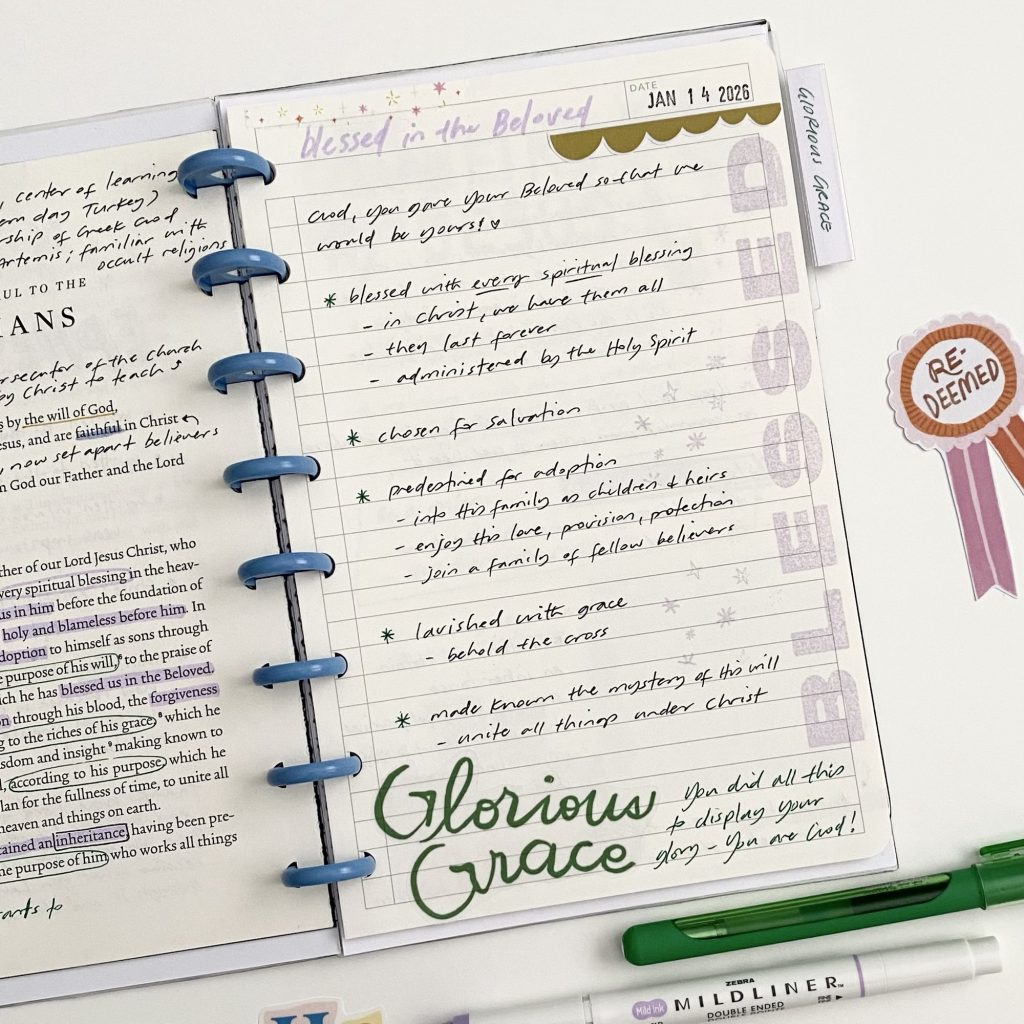 center of learning
day Turkey)
ship of Greek God
Artemis; familiar with
occult religions
UL TO THE
IANS
secutor of the church
by Christ to teach
by the will of God,
esus, and are faithful in Christ
now set apart believers
n God our Father and the Lord
ther of our Lord Jesus Christ, who
very spiritual blessing in the heav-
us in him before the foundation of
holy and blameless before him. In
doption to himself as sons through
e purpose of his will, to the praise of
ch he has blessed us in the Beloved.
on through his blood, the forgiveness
g to the riches of his grace, which he
sdom and insight making known to
, according to his purpose, which he
lan for the fullness of time, to unite all
heaven and things on earth.
tained an inheritance, having been pre-
he purpose of him who works all things
to
blessed in the Beloved
DATE
JAN 14 2026
God, you gave your Beloved so that we
would be yours! ♡
* blessed with every spiritual blessing
- in Christ, we have them all
- they last forever
- administered by the Holy Spirit
* chosen for salvation
* predestined for adoption
- into His family as children & heirs
- enjoy His love, provision, protection
- join a family of fellow believers
* lavished with grace
- behold the cross
* made known the mystery of His will
- unite all things under Christ
Glorious
Grace
you did all this
to display your
glory - you are God!
BLESSED
GLORIOUS GRACE
RE-
DEEMED
ZEBRA
Mild ink MILDLINER™
DOUBLE ENDED
FINE